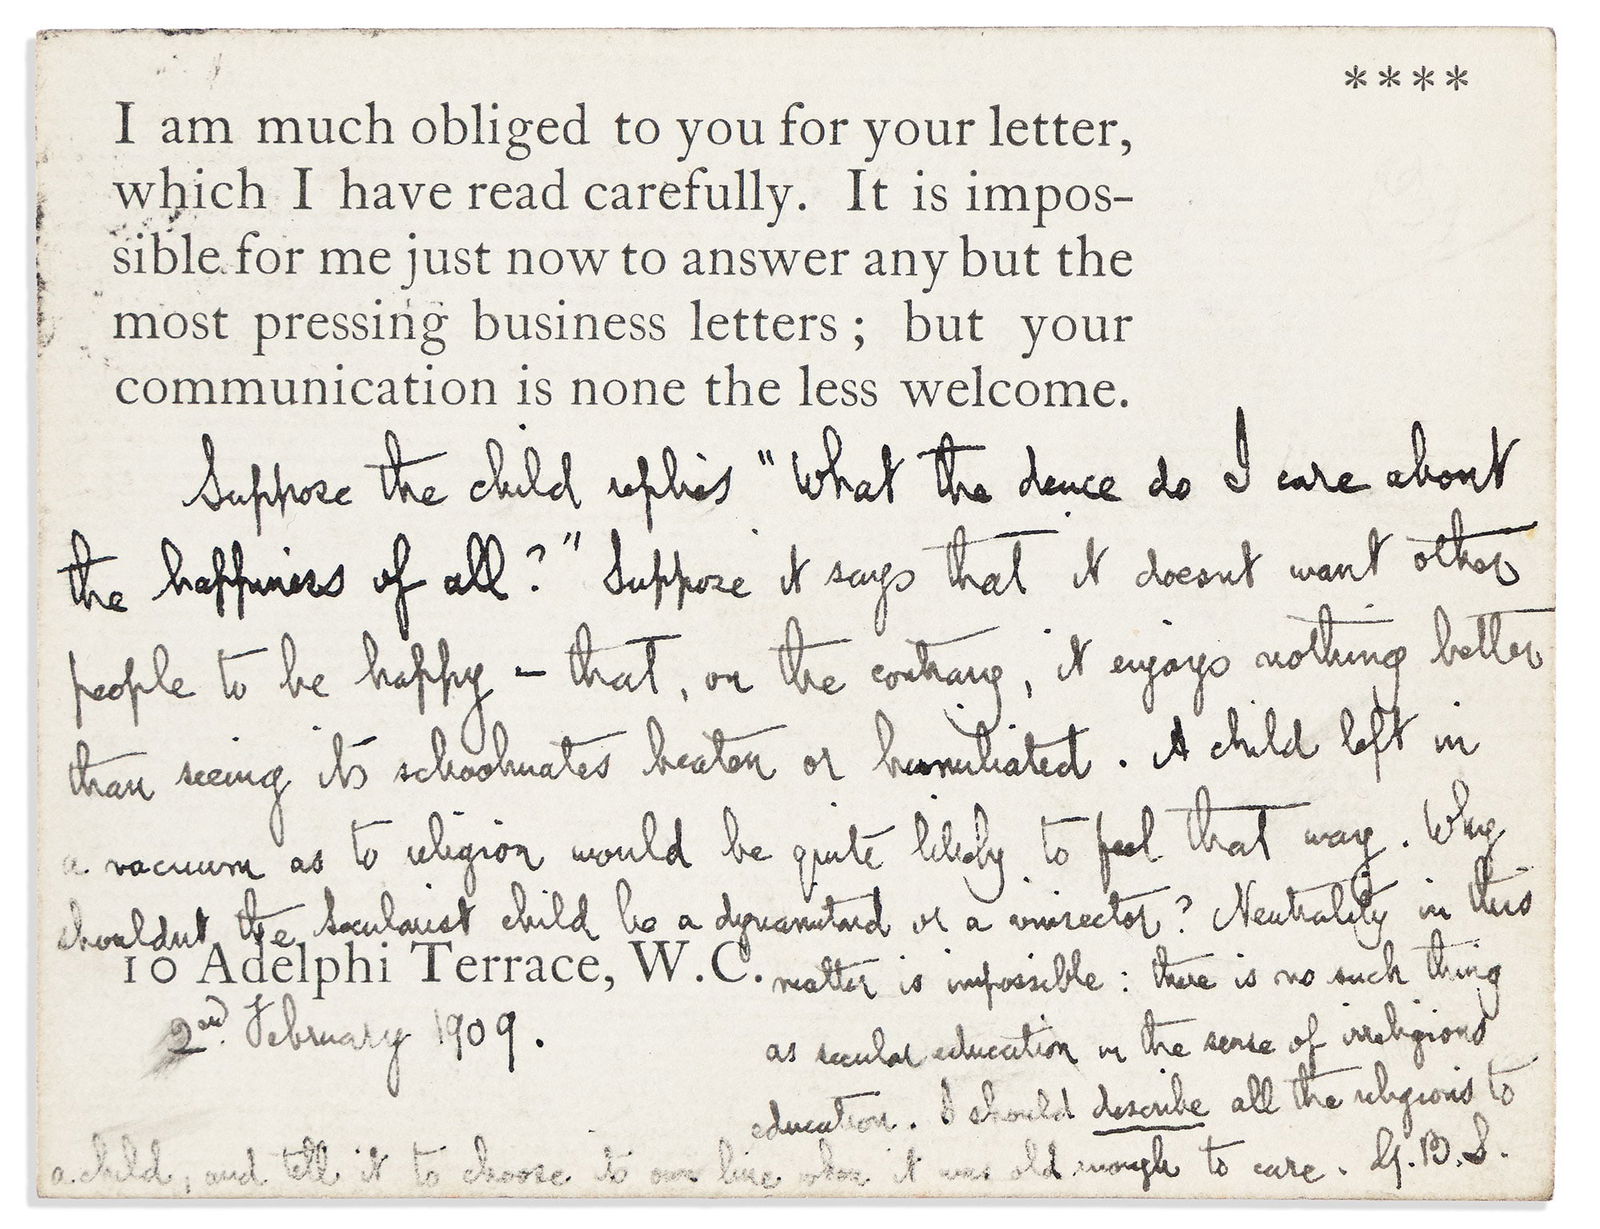 ****
I am much obliged to you for your letter,
which I have read carefully. It is impos-
sible for me just now to answer any but the
most pressing business letters; but your
communication is none the less welcome.
Suppose the child replies "What the deuce do I care about
the happiness of all?" Suppose it says that it doesnt want other
people to be happy – that, on the contrary, it enjoys nothing better
than seeing its schoolmates beaten or humiliated. A child left in
a vacuum as to religion would be quite likely to feel that way. Why
shouldnt the Secularist child be a dynamitard or a vivisector? Neutrality in this
10 Adelphi Terrace, W.C.
matter is impossible: there is no such thing
2nd. February 1909.
as secular education in the sense of irreligious
education. I should describe all the religions to
a child, and tell it to choose its own line when it was old enough to care. G.B.S.